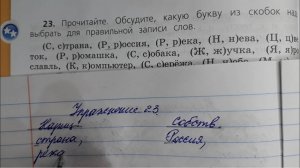 23. Прочитайте. Обсудите, какую букву из скобок на
выбрать для правильной записи слов.
(С, с)трана, (Р, р)оссия, (Р, р)ека, (Н, н)ева, (Ц, ц)в
ток, (Р, р)омашка, (С, с)обака, (Ж, ж)учка, (Я, я)ро
славль, (К, к)омпьютер, (С, с)ерёжа,
Упражнение 23.
Нариц. Собств.
страна, Россия,
река